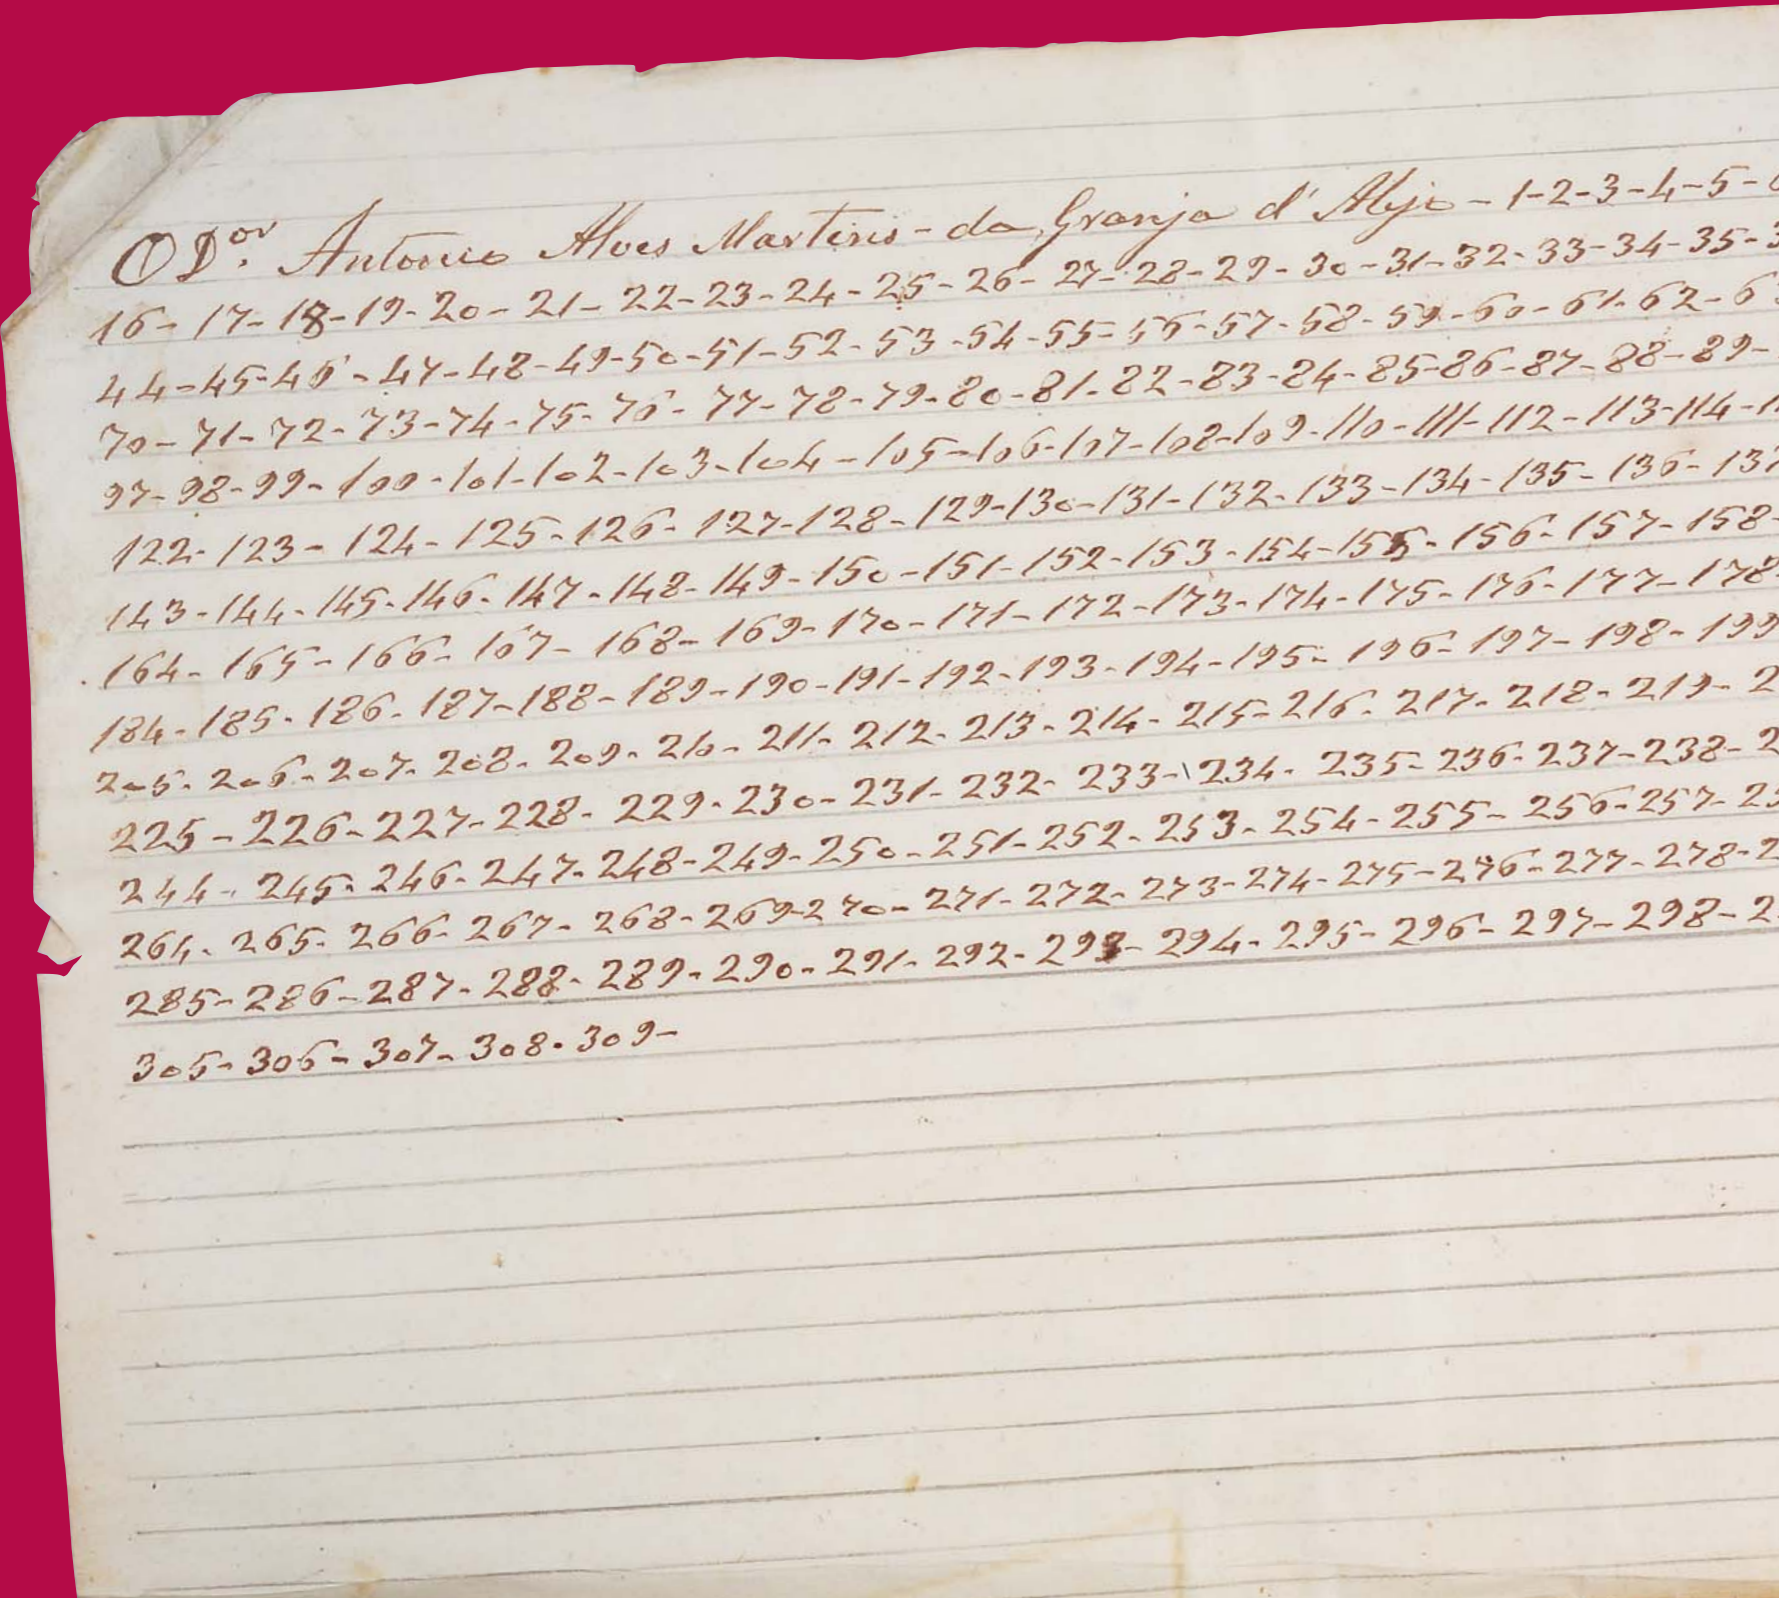 O D.or Antonio Alves Martins - da Granja d'Alijo - 1-2-3-4-5-
16-17-18-19-20-21-22-23-24-25-26-27-28-29-30-31-32-33-34-35-3
44-45-46-47-48-49-50-51-52-53-54-55-56-57-58-59-60-61-62-6
70-71-72-73-74-75-76-77-78-79-80-81-82-83-84-85-86-87-88-89-
97-98-99-100-101-102-103-104-105-106-107-108-109-110-111-112-113-114-11
122-123-124-125-126-127-128-129-130-131-132-133-134-135-136-137
143-144-145-146-147-148-149-150-151-152-153-154-155-156-157-158-
164-165-166-167-168-169-170-171-172-173-174-175-176-177-178-
184-185-186-187-188-189-190-191-192-193-194-195-196-197-198-199
205-206-207-208-209-210-211-212-213-214-215-216-217-218-219-2
225-226-227-228-229-230-231-232-233-234-235-236-237-238-2
244-245-246-247-248-249-250-251-252-253-254-255-256-257-25
264-265-266-267-268-269-270-271-272-273-274-275-276-277-278-2
285-286-287-288-289-290-291-292-293-294-295-296-297-298-2
305-306-307-308-309-